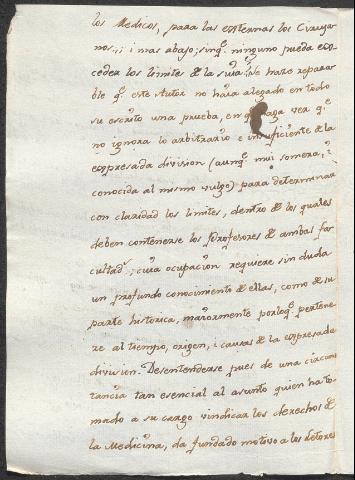 los Medicos, para las externas los Ciruja
nos,, i mas abajo; sin q.e ninguno pueda ex
ceder los limites de la suia: Se hace repara
ble q.e este Autor no haia alegado en todo
su escrito una prueba, en q.e haga ver q.e
no ignora lo arbitrario e insuficiente de la
expresada division (aunq.e mui somera, i
conocida al mismo vulgo) para determinar
con claridad los limites, dentro de los quales
deben contenerse los Profesores de ambas fa
cultad.s; cuia ocupacion requiere sin duda
un profundo conocimiento de ellas, como de su
parte historica, maiormente por lo q.e pertene
ze al tiempo, origen, i causas de la expresada
division. Desentenderse pues de una circuns
tancia tan esencial al asunto quien ha to
mado a su cargo vindicar los derechos de
la Medicina, da fundado motivo a los